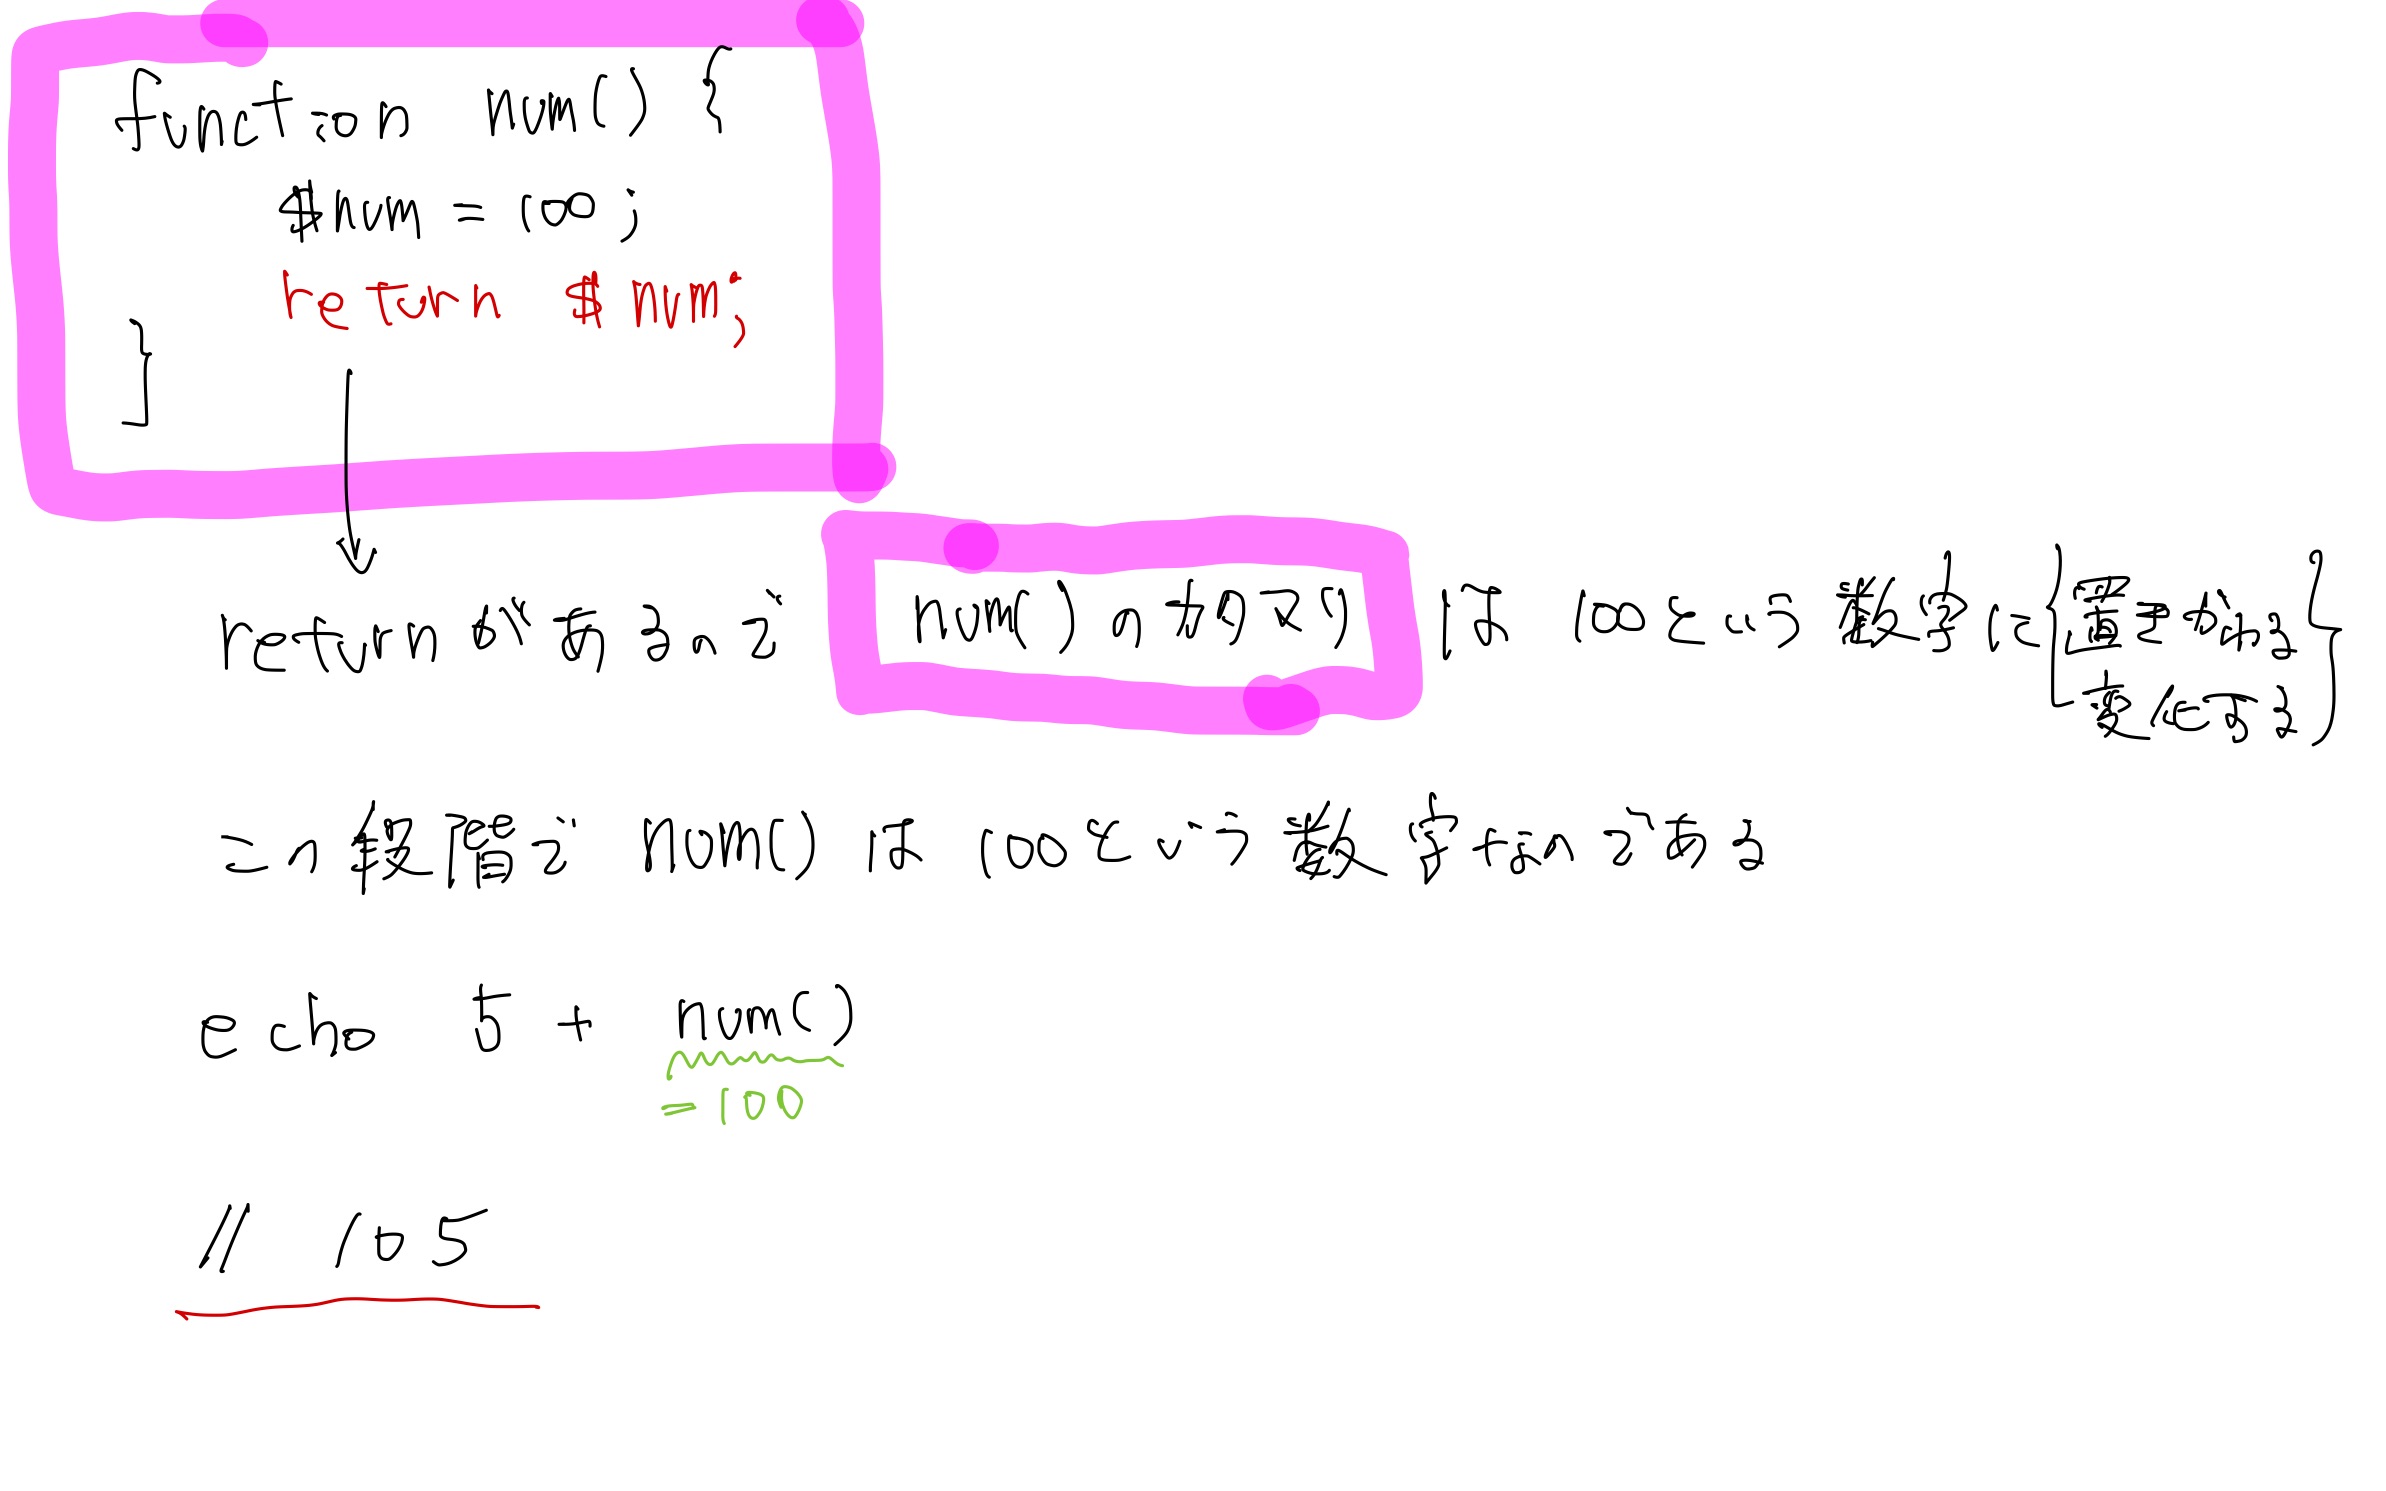 function num() {
$num = 100;
return $num;
}
returnがあるので num()のカタマリ は 100という数字に{置き換わる
変化する}
この段階で num()は 100という数字なのである
echo 5 + num()
=100
// 105